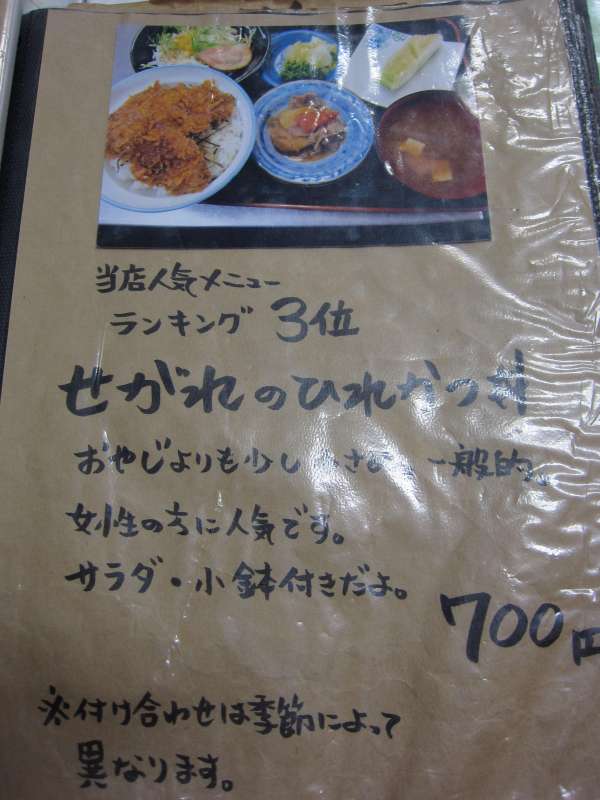 当店人気メニュー
ランキング 3位
せがれのひれかつ丼
おやじよりも少し 一般的。
女性の方に人気です。
サラダ・小鉢付きだよ。
700円
※付け合わせは季節によって
異なります。